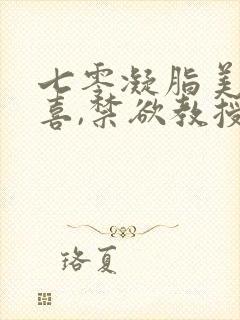 七零凝脂美
喜,禁欲教授
珞夏